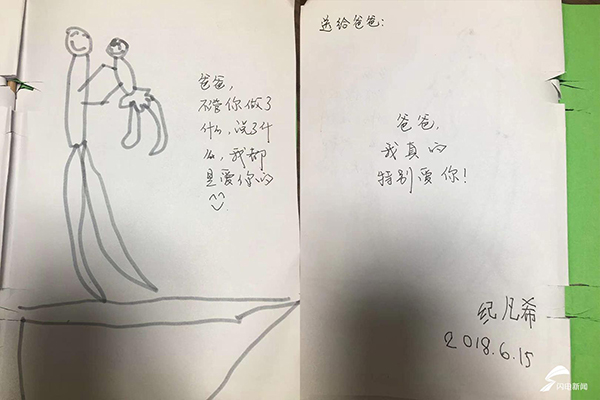 爸爸,
不管你做了
什么,说了什
么,我都
是爱你的
送给爸爸:
爸爸,
我真的
特别爱你!
纪凡希
2018.6.15
闪电新闻